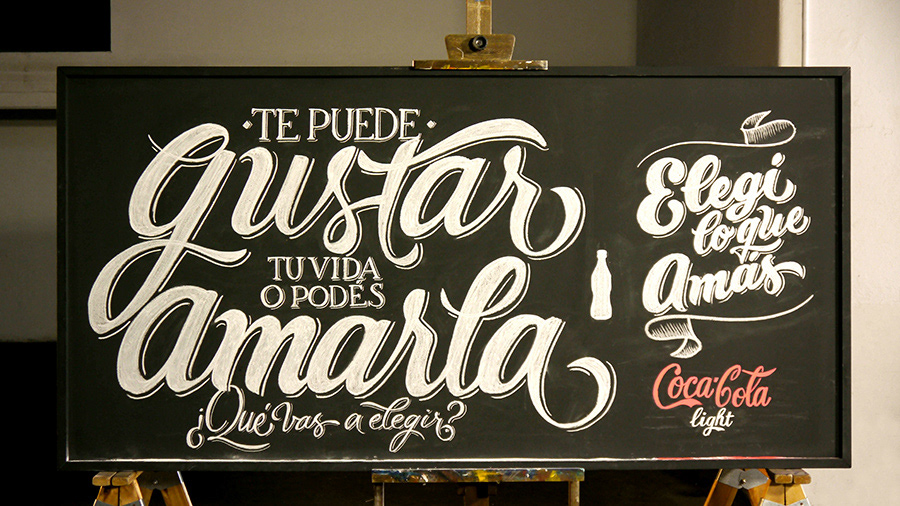 TE PUEDE
gustar
TU VIDA
O PODÉS
amarla
¿Qué vas a elegir?
Elegí
lo que
Amás
Coca-Cola
light